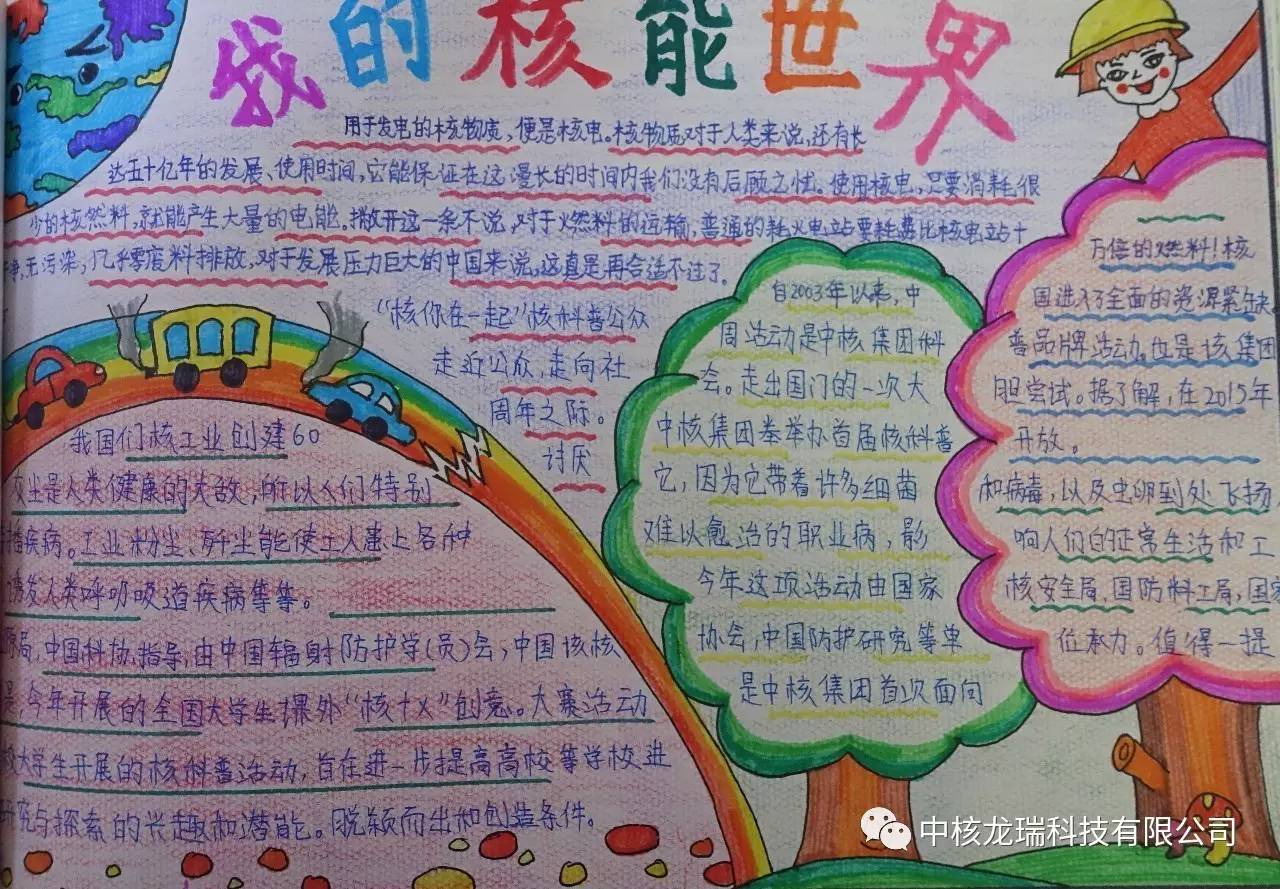 我的核能世界
用于发电的核物质，便是核电。核物质对于人类来说，还有长
达五十亿年的发展、使用时间，它能保证在这漫长的时间内我们没有后顾之忧。使用核电，只要消耗很
少的核燃料，就能产生大量的电能。撇开这一条不说，对于燃料的运输，普通的耗火电站要耗费比核电站十
净，无污染，几乎零废料排放，对于发展压力巨大的中国来说，这真是再合适不过了。
“核你在一起”核科普公众
走近公众，走向社
周年之际。
讨厌
我国们核工业创建60
灰尘是人类健康的大敌，所以人们特别
疾病。工业粉尘、矽尘能使工人患上各种
诱发人类呼吸吸道疾病等等。
原局，中国科协指导，由中国辐射防护学(员)会，中国该核
是，今年开展的全国大学生课外“核十X”创意。大赛活动
校大学生开展的核科普活动，旨在进一步提高高校等学校进
研究与探索的兴趣和潜能。脱颖而出和创造条件。
自2003年以来，中
周活动是中核集团科
会。走出国门的一次大
中核集团奉举办首届核科普
它，因为它带着许多细菌
难以愈治的职业病，影
今年这项活动由国家
协会，中国防护研究等单
是中核集团首次面向
万倍的燃料！核
国进行了全面的资源紧缺
普品牌活动。也是该集团
胆尝试。据了解，在2015年
开放。
和病毒，以及虫卵到处飞扬
响人们的正常生活和工
核安全局、国防科工局，国家
位承力。值得一提
中核龙瑞科技有限公司